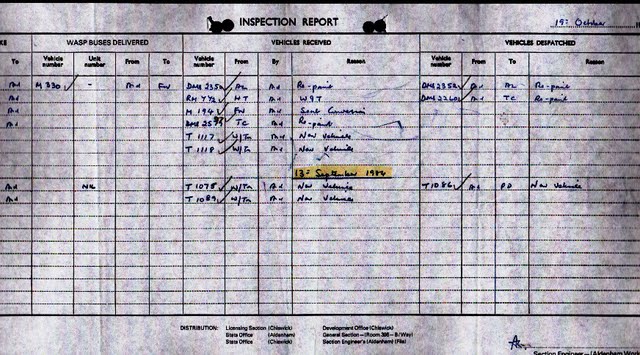 INSPECTION REPORT
19th October
WASP BUSES DELIVERED VEHICLES RECEIVED VEHICLES DESPATCHED
To Vehicle number Unit number From To Vehicle number From By Reason Vehicle number From To Reason
Ad M 330 - Ad FW DMS 2352 AL Ad Re-paint DMS 2352 Ad AL Re-paint
Ad HT Ad DMS 2260 Ad TC Re-paint
Ad M 194 FW Ad Seat Conversion
Ad DMS TC Ad Re-paint
T 1117 W/Tn Ad New Vehicle
T 1118 W/Tn Ad New Vehicle
13th September 1984
Ad NIL T 1078 W/Tn Ad New Vehicle T 1086 Ad PD New Vehicle
Ad T 1089 W/Tn Ad New Vehicle
DISTRIBUTION: Licensing Section (Chiswick) Development Office (Chiswick)
Stats Office (Aldenham) General Section - (Room 396 - B/Way)
Stats Office (Chiswick) Section Engineer's (Aldenham) (File)
Section Engineer - (Aldenham Work